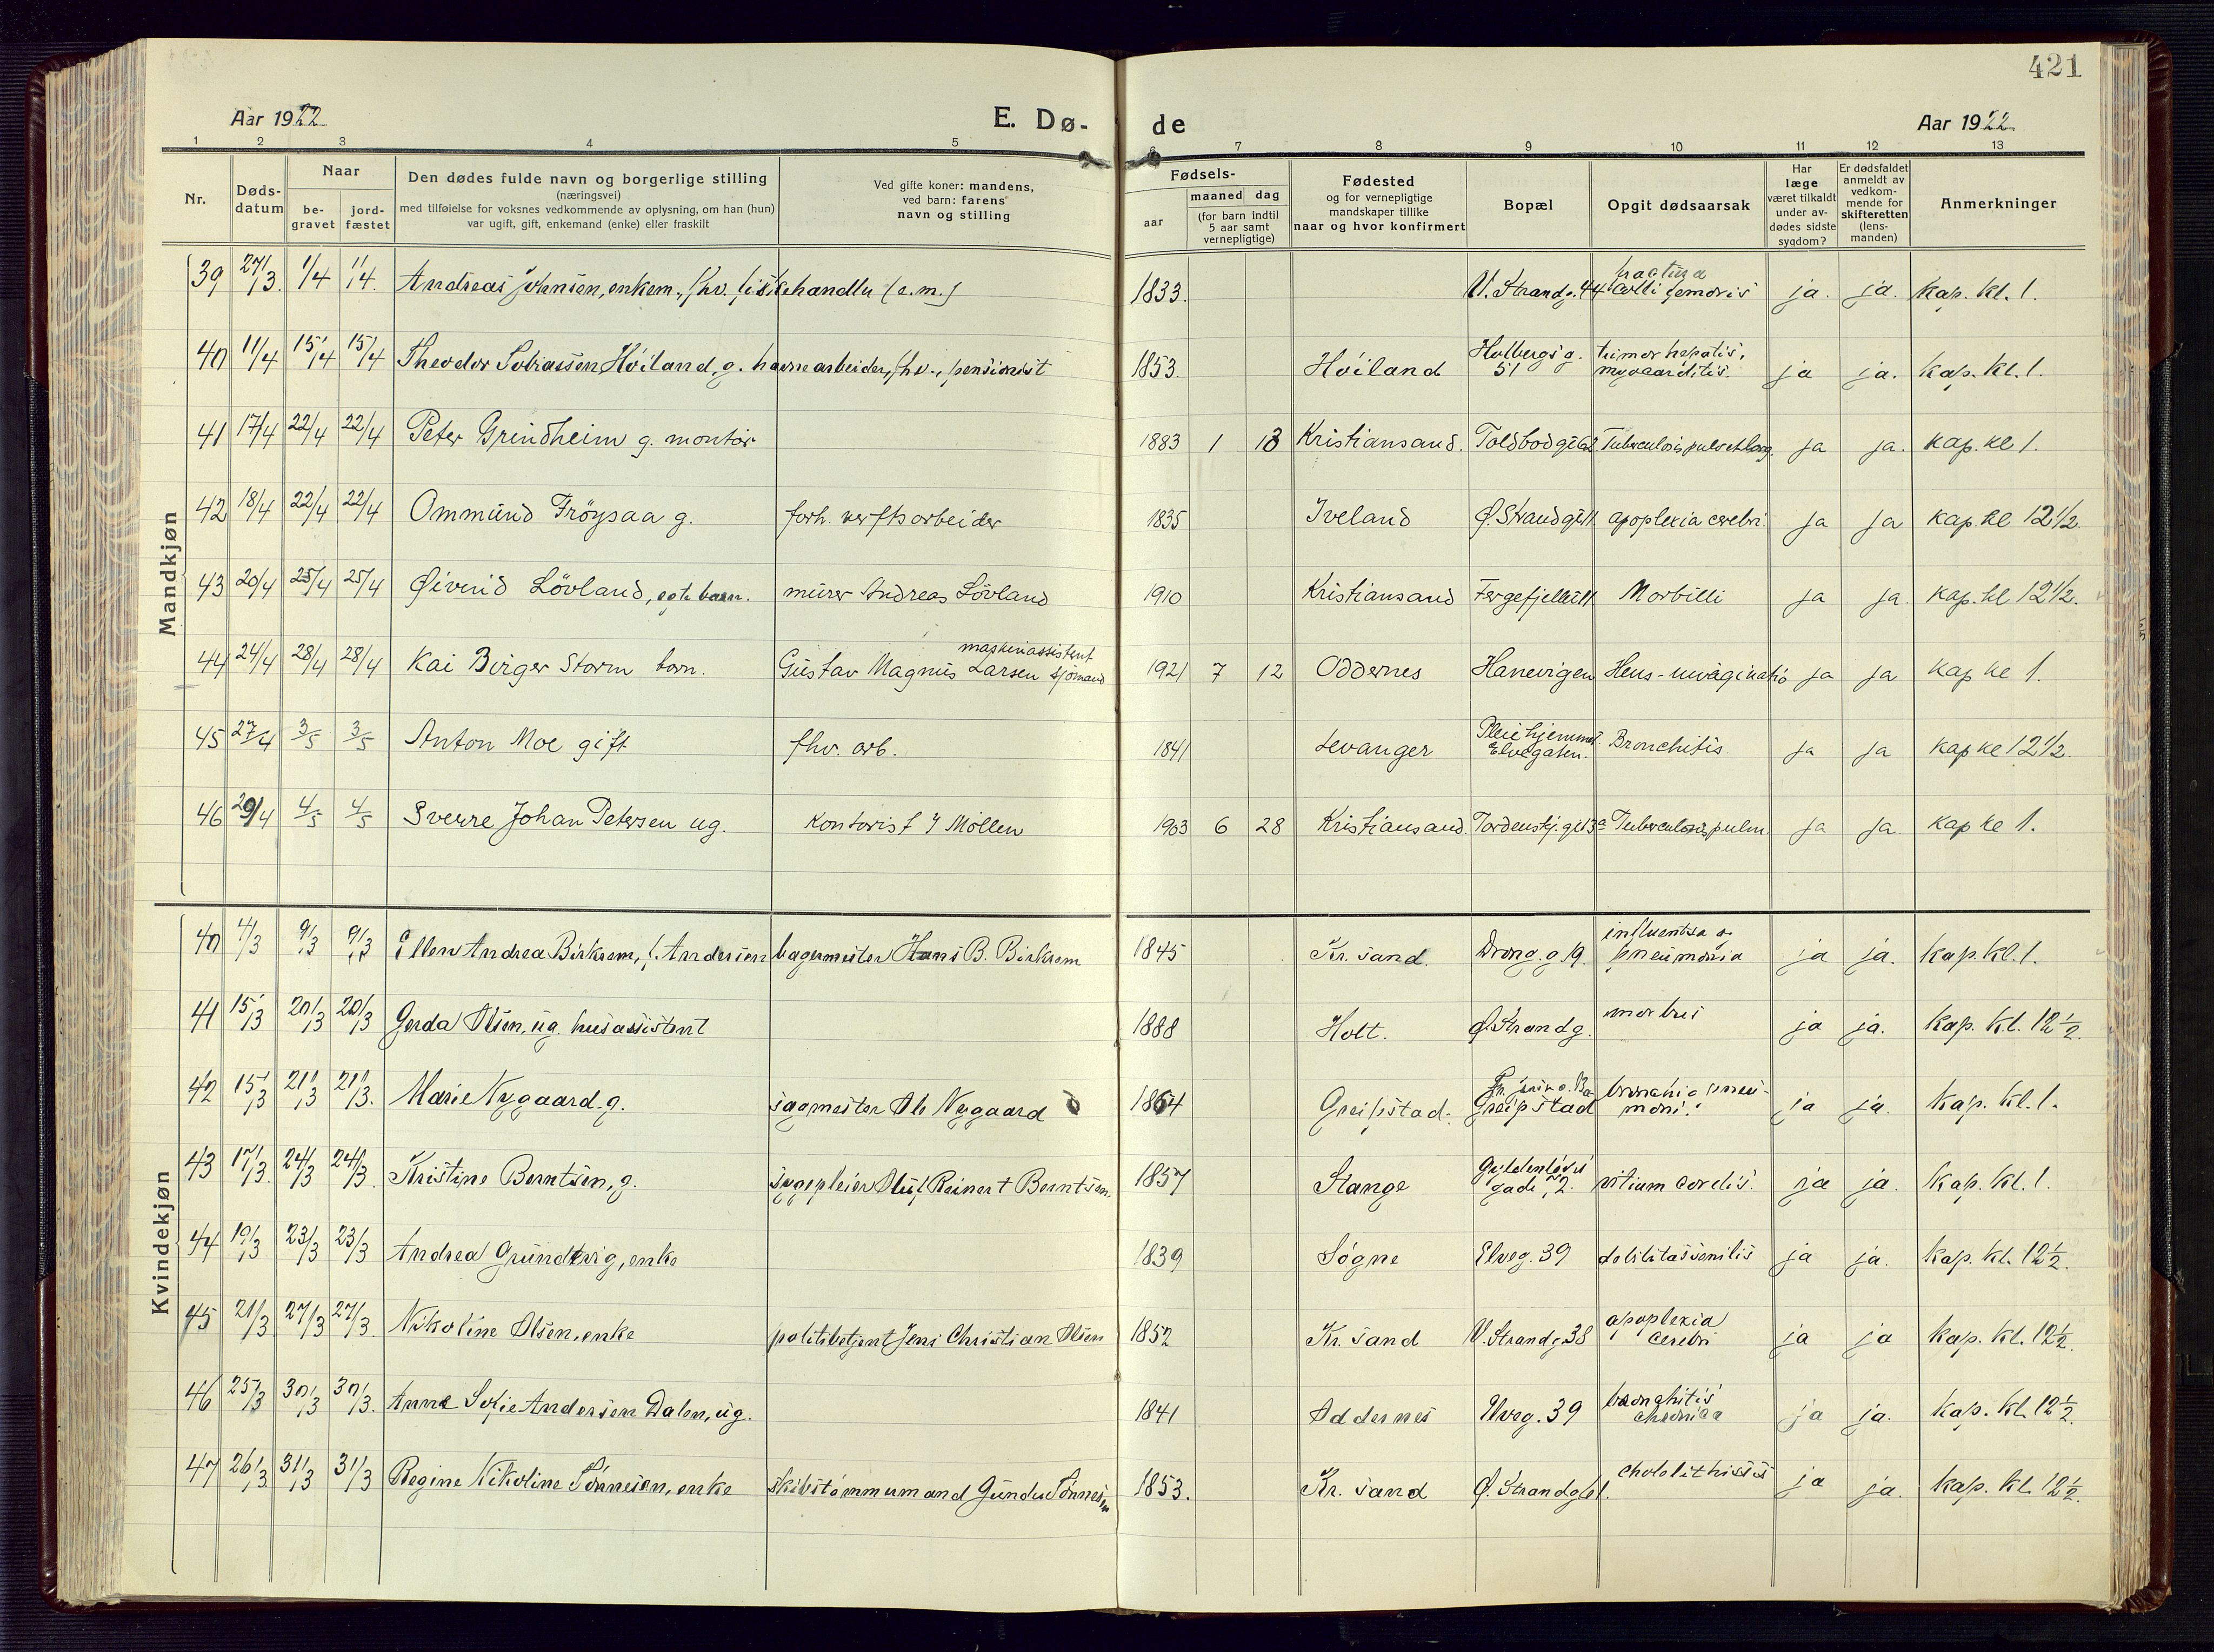 421
Aar 1922
E. Dø-
de
Aar 1922
1 2 3 4 5 6 7 8 9 10 11 12 13
Nr.
Døds-
datum
Naar
be-
gravet
jord-
fæstet
Den dødes fulde navn og borgerlige stilling
(næringsvei)
med tilføielse for voksnes vedkommende av oplysning, om han (hun)
var ugift, gift, enkemand (enke) eller fraskilt
Ved gifte koner: mandens,
ved barn: farens
navn og stilling
Fødsels-
aar
maaned dag
(for barn indtil
5 aar samt
vernepligtige)
Fødested
og for vernepligtige
mandskaper tillike
naar og hvor konfirmert
Bopæl
Opgit dødsaarsak
Har
læge
været tilkaldt
under av-
dødes sidste
sygdom?
Er dødsfaldet
anmeldt av
vedkom-
mende for
skifteretten
(lens-
manden)
Anmerkninger
Mandkjøn
39 27/3. 1/4 1/4. Andreas Johnsen, enkem., fhv. fiskehandler (e.m.) 1833. V. Strandg. 44 fractura colli femoris ja. ja. Kap. kl. 1.
40 11/4 15/4 15/4 Theodor Tobiassen Höiland, g. havnearbeider, fhv., pensionist 1853. Höiland Holbergs g. 51 tumor hepatis, myocarditis. ja ja. Kap. kl. 1.
41 17/4 22/4 22/4 Peter Grindheim g. montør 1883 1 13 Kristiansand. Toldbodgt 62 Tuberculosis pulm et laryng. ja ja. Kap. kl 1.
42 18/4 22/4 22/4 Ommund Fröysaa g. forh. verftsarbeider 1835 Iveland Ø. Strandgt 11 apoplexia cerebri. ja ja Kap. kl 12 1/2.
43 20/4 25/4 25/4 Øivind Lövland, egte barn. murer Andreas Lövland 1910 Kristiansand Fergefjellet 11 Morbilli ja ja. Kap. kl 12 1/2.
44 24/4 28/4 28/4 Kai Birger Storm barn. maskinassistent Gustav Magnus Larsen sjömand 1921 7 12 Oddernes Hanevigen Ileus - invaginatio ja ja Kap kl 1.
45 27/4 3/5 3/5 Anton Moe gift fhv. arb. 1841 Levanger Pleiehjemmet Elvegaten. Bronchitis. ja ja Kap kl 12 1/2.
46 29/4 4/5 4/5 Sverre Johan Petersen ug. Kontorist i Möllen 1903 6 28 Kristiansand Tordenskj. gt 13a Tuberculosis pulm. ja ja Kap kl 1.
Kvindekjøn
40 4/3 9/3 9/3 Ellen Andrea Birkrem, f. Andersen bagermester Hans B. Birkrem 1845 Kr. sand. Dronn. g. 19. influentsa & pneumonia ja ja. Kap. kl. 1.
41 15/3 20/3 20/3 Gerda Olsen, ug. husassistent 1888 Holt. Ø. Strandg. ja ja. Kap. Kl. 12 1/2.
42 15/3 21/3 21/3. Marie Nygaard. g. sagmester Ole Nygaard 1864 Greipstad. Greipstad broncho pneumoni. ja ja. Kap. kl. 1.
43 17/3. 24/3 24/3. Kristine Berntsen, g. sygepleier Oluf Reinert Berntsen. 1857 Stange Gyldenløves gade, 2. vitium cordis. ja ja. Kap. Kl. 1.
44 19/3 23/3 23/3 Andrea Grundtvig, enke 1839 Søgne Elveg. 39 debilitas senilis ja ja. Kap. kl. 12 1/2.
45 21/3 27/3 27/3. Nikoline Olsen, enke politibetjent Jens Christian Olsen 1852 Kr. sand V. Strandg 38 apoplexia cerebri ja ja Kap. Kl. 12 1/2.
46 25/3 30/3 30/3. Anne Sofie Andersen Dalen, ug. 1841 Oddernes Elveg. 39 bronchitis chronica ja ja. Kap. Kl. 12 1/2.
47 26/3. 31/3 31/3 Regine Nikoline Tønnesen, enke skibstømmermand Gunder Tønnesen 1853. Kr. sand Ø. Strandg 61. cholelithiasis ja ja. Kap. Kl. 12 1/2.